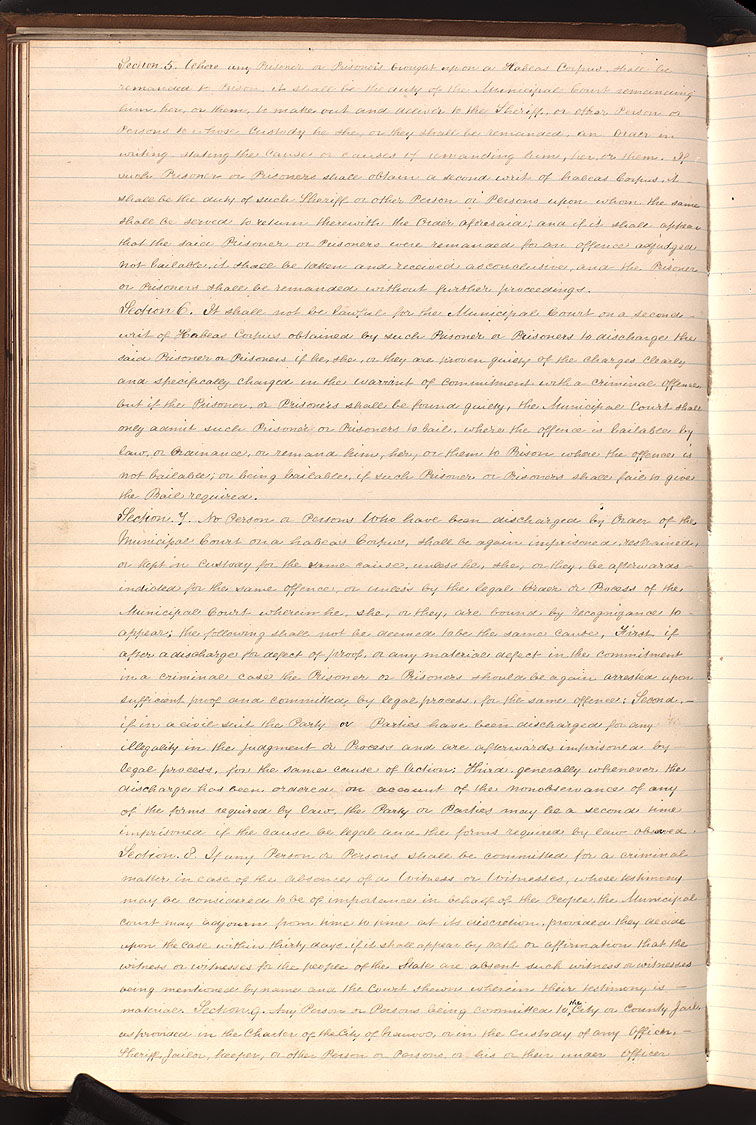 Section 5. Where any Prisoner or Prisoners brought upon a Habeas Corpus, shall be
remanded to Prison, it shall be the duty of the Municipal Court remanding
him, her, or them, to make out and deliver to the Sheriff, or other Person or
Persons to whose Custody he she, or they shall be remanded, an Order in
writing stating the Cause or causes of remanding him, her, or them. If
such Prisoner or Prisoners shall obtain a second writ of habeas Corpus, it
shall be the duty of such Sheriff or other Person or Persons upon whom the same
shall be served to return therewith the Order aforesaid; and if it shall appear
that the said Prisoner or Prisoners were remanded for an offence adjudged
not bailable, it shall be taken and received as conclusive, and the Prisoner
or Prisoners shall be remanded without further proceedings.
Section 6. It shall not be lawful for the Municipal Court on a second
writ of Habeas Corpus obtained by such Prisoner or Prisoners to discharge the
said Prisoner or Prisoners if he, she, or they are proven guilty of the charges clearly
and specifically Charged in the warrant of Commitment with a criminal Offence,
but if the Prisoner, or Prisoners shall be found guilty, the Municipal Court shall
only admit such Prisoner or Prisoners to bail, where the offence is bailable by
law, or Ordinance, or remand him, her, or them to Prison where the offence is
not bailable; or being bailable, if such Prisoner or Prisoners shall fail to give
the Bail required.
Section. 7. No Person or Persons Who have been discharged by Order of the
Municipal Court on a habeas Corpus, shall be again imprisoned, restrained,
or kept in Custody for the same cause, unless he, she, or they, be afterwards
indicted for the same Offence, or unless by the legal Order or Process of the
Municipal Court wherein he, she, or they, are bound by recognizance to
appear; the following shall not be deemed to be the same cause, First, if
after a discharge for defect of proof, or any material defect in the commitment
in a criminal case the Prisoner or Prisoners should be again arrested upon
sufficient proof and committed by legal process, for the same offence; Second,
if in a civil suit the Party or Parties have been discharged for any
illegality in the judgment or Process and are afterwards imprisoned by
legal process, for the same cause of Action; Third, generally whenever the
discharge has been ordered on account of the nonobservance of any
of the forms required by law, the Party or Parties may be a second time
imprisoned if the cause be legal and the forms required by law observed.
Section. 8. If any Person or Persons shall be committed for a criminal
matter in case of the absence of a Witness or Witnesses, whose testimony
may be considered to be of importance in behalf of the People, the Municipal
Court may adjourn from time to time at its discretion, provided they decide
upon the case within thirty days, if it shall appear by oath or affirmation that the
witness or witnesses for the people of the State are absent such witness or witnesses
being mentioned by name and the Court shewn wherein their testimony is
material. Section 9. Any Person or Persons being committed to the City or County Jail,
as provided in the Charter of the City of Nauvoo, or in the Custody of any Officer,
Sheriff, Jailor, keeper, or other Person or Persons or his or their under Officer